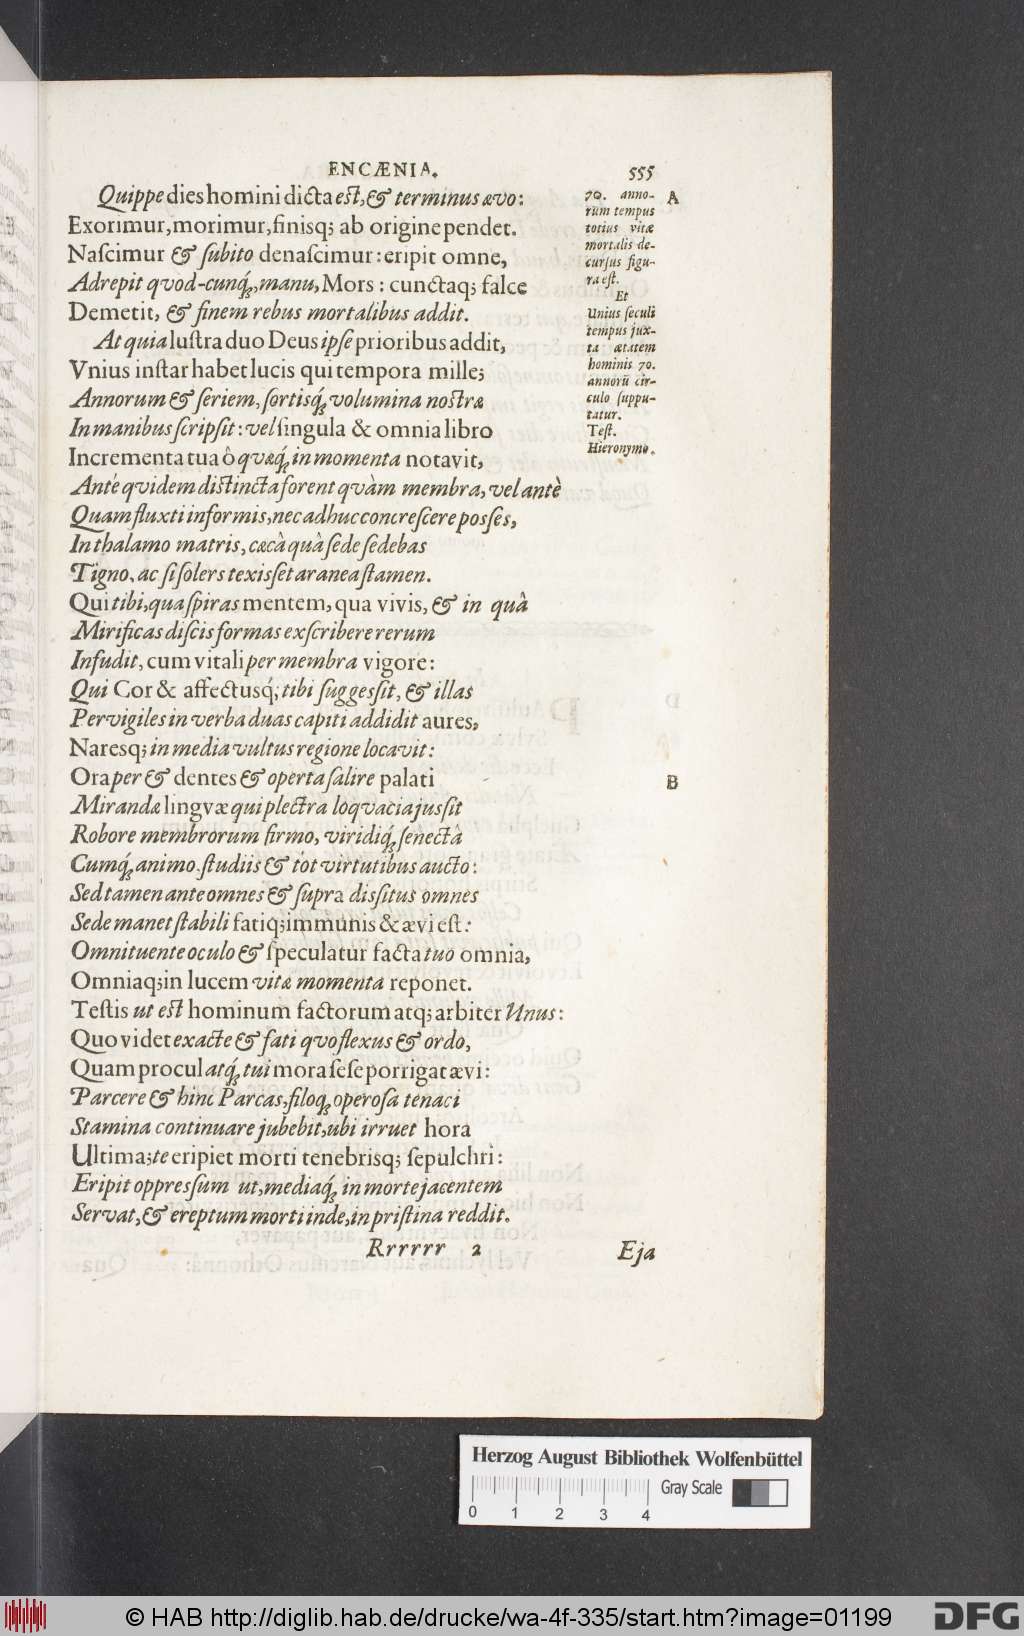 ENCÆNIA. 555
Quippe dies homini dicta est, & terminus ævo:
Exorimur, morimur, finisq; ab origine pendet.
Nascimur & subito denascimur: eripit omne,
Adrepit qvod-cunq́;, manu, Mors: cunctaq; falce
Demetit, & finem rebus mortalibus addit.
At quia lustra duo Deus ipse prioribus addit,
Vnius instar habet lucis qui tempora mille;
Annorum & seriem, sortisq́; volumina nostræ
In manibus scripsit: vel singula & omnia libro
Incrementa tua ô qvæq́; in momenta notavit,
Antè qvidem distincta forent qvàm membra, vel antè
Quam fluxti informis, nec adhuc concrescere posses,
In thalamo matris, cæcâ quâ sede sedebas
Tigno, ac si solers texisset aranea stamen.
Qui tibi, qua spiras mentem, qua vivis, & in quâ
Mirificas discis formas exscribere rerum
Infudit, cum vitali per membra vigore:
Qui Cor & affectusq́; tibi suggessit, & illas
Pervigiles in verba duas capiti addidit aures,
Naresq; in media vultus regione locavit:
Ora per & dentes & operta salire palati
Mirandæ lingvæ qui plectra loqvacia jussit
Robore membrorum firmo, viridiq́; senectâ
Cumq́; animo studiis & tot virtutibus aucto:
Sed tamen ante omnes & supra dissitus omnes
Sede manet stabili fatiq; immunis & ævi est:
Omnituente oculo & speculatur facta tuo omnia,
Omniaq; in lucem vitæ momenta reponet.
Testis ut est hominum factorum atq; arbiter Unus:
Quo videt exacte & fati qvo flexus & ordo,
Quam procul atq́; tui mora sese porrigat ævi:
Parcere & hinc Parcas, filoq́; operosa tenaci
Stamina continuare jubebit, ubi irruet hora
Ultima; te eripiet morti tenebrisq; sepulchri:
Eripit oppressum ut, mediaq́; in morte jacentem
Servat, & ereptum morti inde, in pristina reddit.
Rrrrrr 2 Eja
70. anno- A
rum tempus
totius vitæ
mortalis de-
cursus figu-
ra est.
Et
Unius seculi
tempus jux-
ta ætatem
hominis 70.
annorū cir-
culo suppu-
tatur.
Test.
Hieronymo.
B
Herzog August Bibliothek Wolfenbüttel
Gray Scale
0 1 2 3 4
© HAB http://diglib.hab.de/drucke/wa-4f-335/start.htm?image=01199
DFG